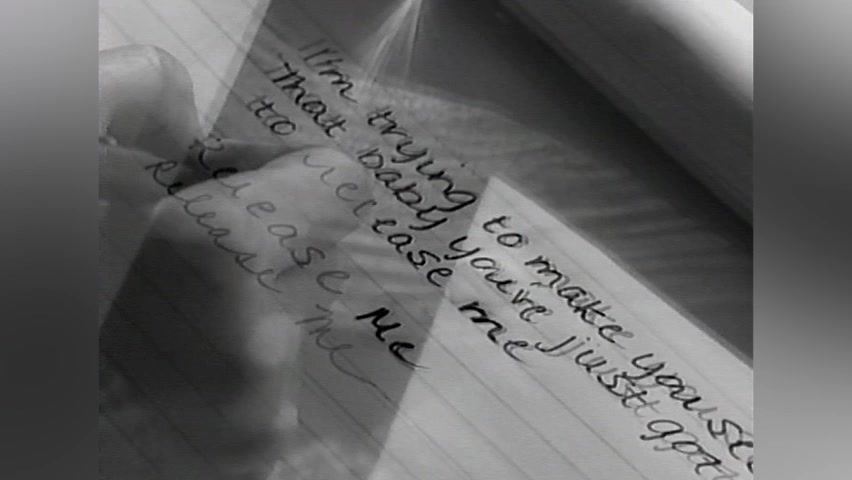 I'm trying to make you see
that baby you've just got
to release me
Release Me
Release Me